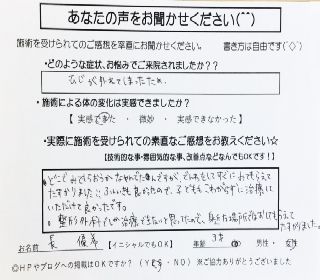 あなたの声をお聞かせください(^^)
施術を受けられてのご感想を率直にお聞かせください。 書き方は自由です(^◇^)
・どのような症状、お悩みでご来院されましたか??
ひじが外れてしまったため。
・施術による体の変化は実感できましたか?
【 実感できた ・ 微妙 ・ 実感できなかった 】
・実際に施術を受けられての素直なご感想をお教えください☆
【技術的な事・雰囲気的な事、改善点などなんでもOKです!】
どこでみてもらおうかなやんでた
たすかりました。
子どももこわがらずに治療して
いただけて良かったです。
整形外科でしか治療できないと思ってたので、
お名前 【イニシャルでもOK】 年齢 3才 男性・女性
◎HPやブログへの掲載はOKですか?(YES・NO) ※ご協力ありがとうございました